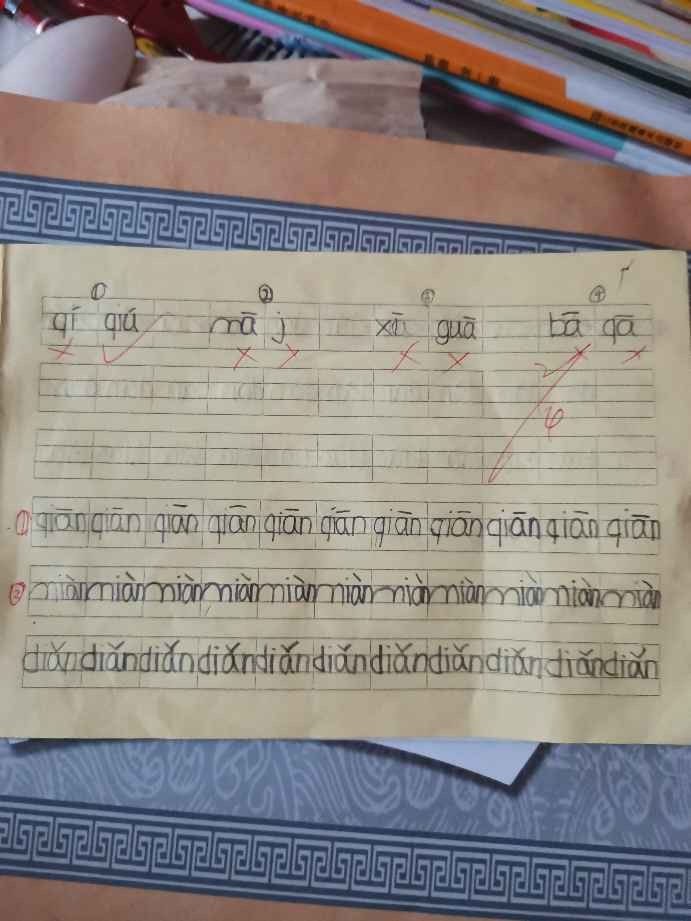 ① ② ③ ④
qí qiú mā j xī guā bā qā
① qiān qiān qiān qiān qiān qiān qiān qiān qiān qiān qiān
② miàn miàn miàn miàn miàn miàn miàn miàn miàn miàn miàn
diǎn diǎn diǎn diǎn diǎn diǎn diǎn diǎn diǎn diǎn diǎn